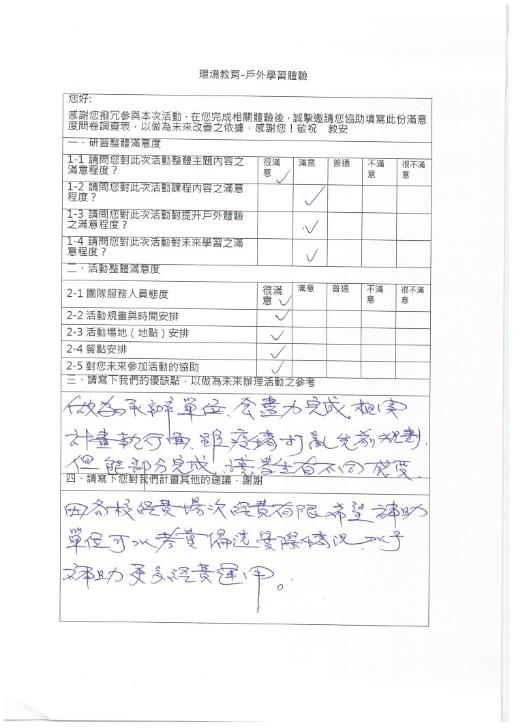 環境教育-戶外學習體驗
您好:
感謝您撥冗參與本次活動，在您完成相關體驗後，誠摯邀請您協助填寫此份滿意
度問卷調查表，以做為未來改善之依據，感謝您！敬祝　教安
一、研習整體滿意度
1-1 請問您對此次活動整體主題內容之
滿意程度？
很滿
意
滿意
普通
不滿
意
很不滿
意
1-2 請問您對此次活動課程內容之滿意
程度？
1-3 請問您對此次活動對提升戶外體驗
之滿意程度？
1-4 請問您對此次活動對未來學習之滿
意程度？
二、活動整體滿意度
2-1 團隊服務人員態度
很滿
意
滿意
普通
不滿
意
很不滿
意
2-2 活動規畫與時間安排
2-3 活動場地（地點）安排
2-4 餐點安排
2-5 對您未來參加活動的協助
三、請寫下我們的優缺點，以做為未來辦理活動之參考
做為承辦單位，會盡力完成相關
計畫執行面，雖疫情打亂先前規劃，
但能部分完成，讓學生有不同感受．
四、請寫下您對我們計畫其他的建議，謝謝
因各校經費場次經費有限，希望補助
單位可以考量偏遠實際情況，以予
補助更多經費運用。